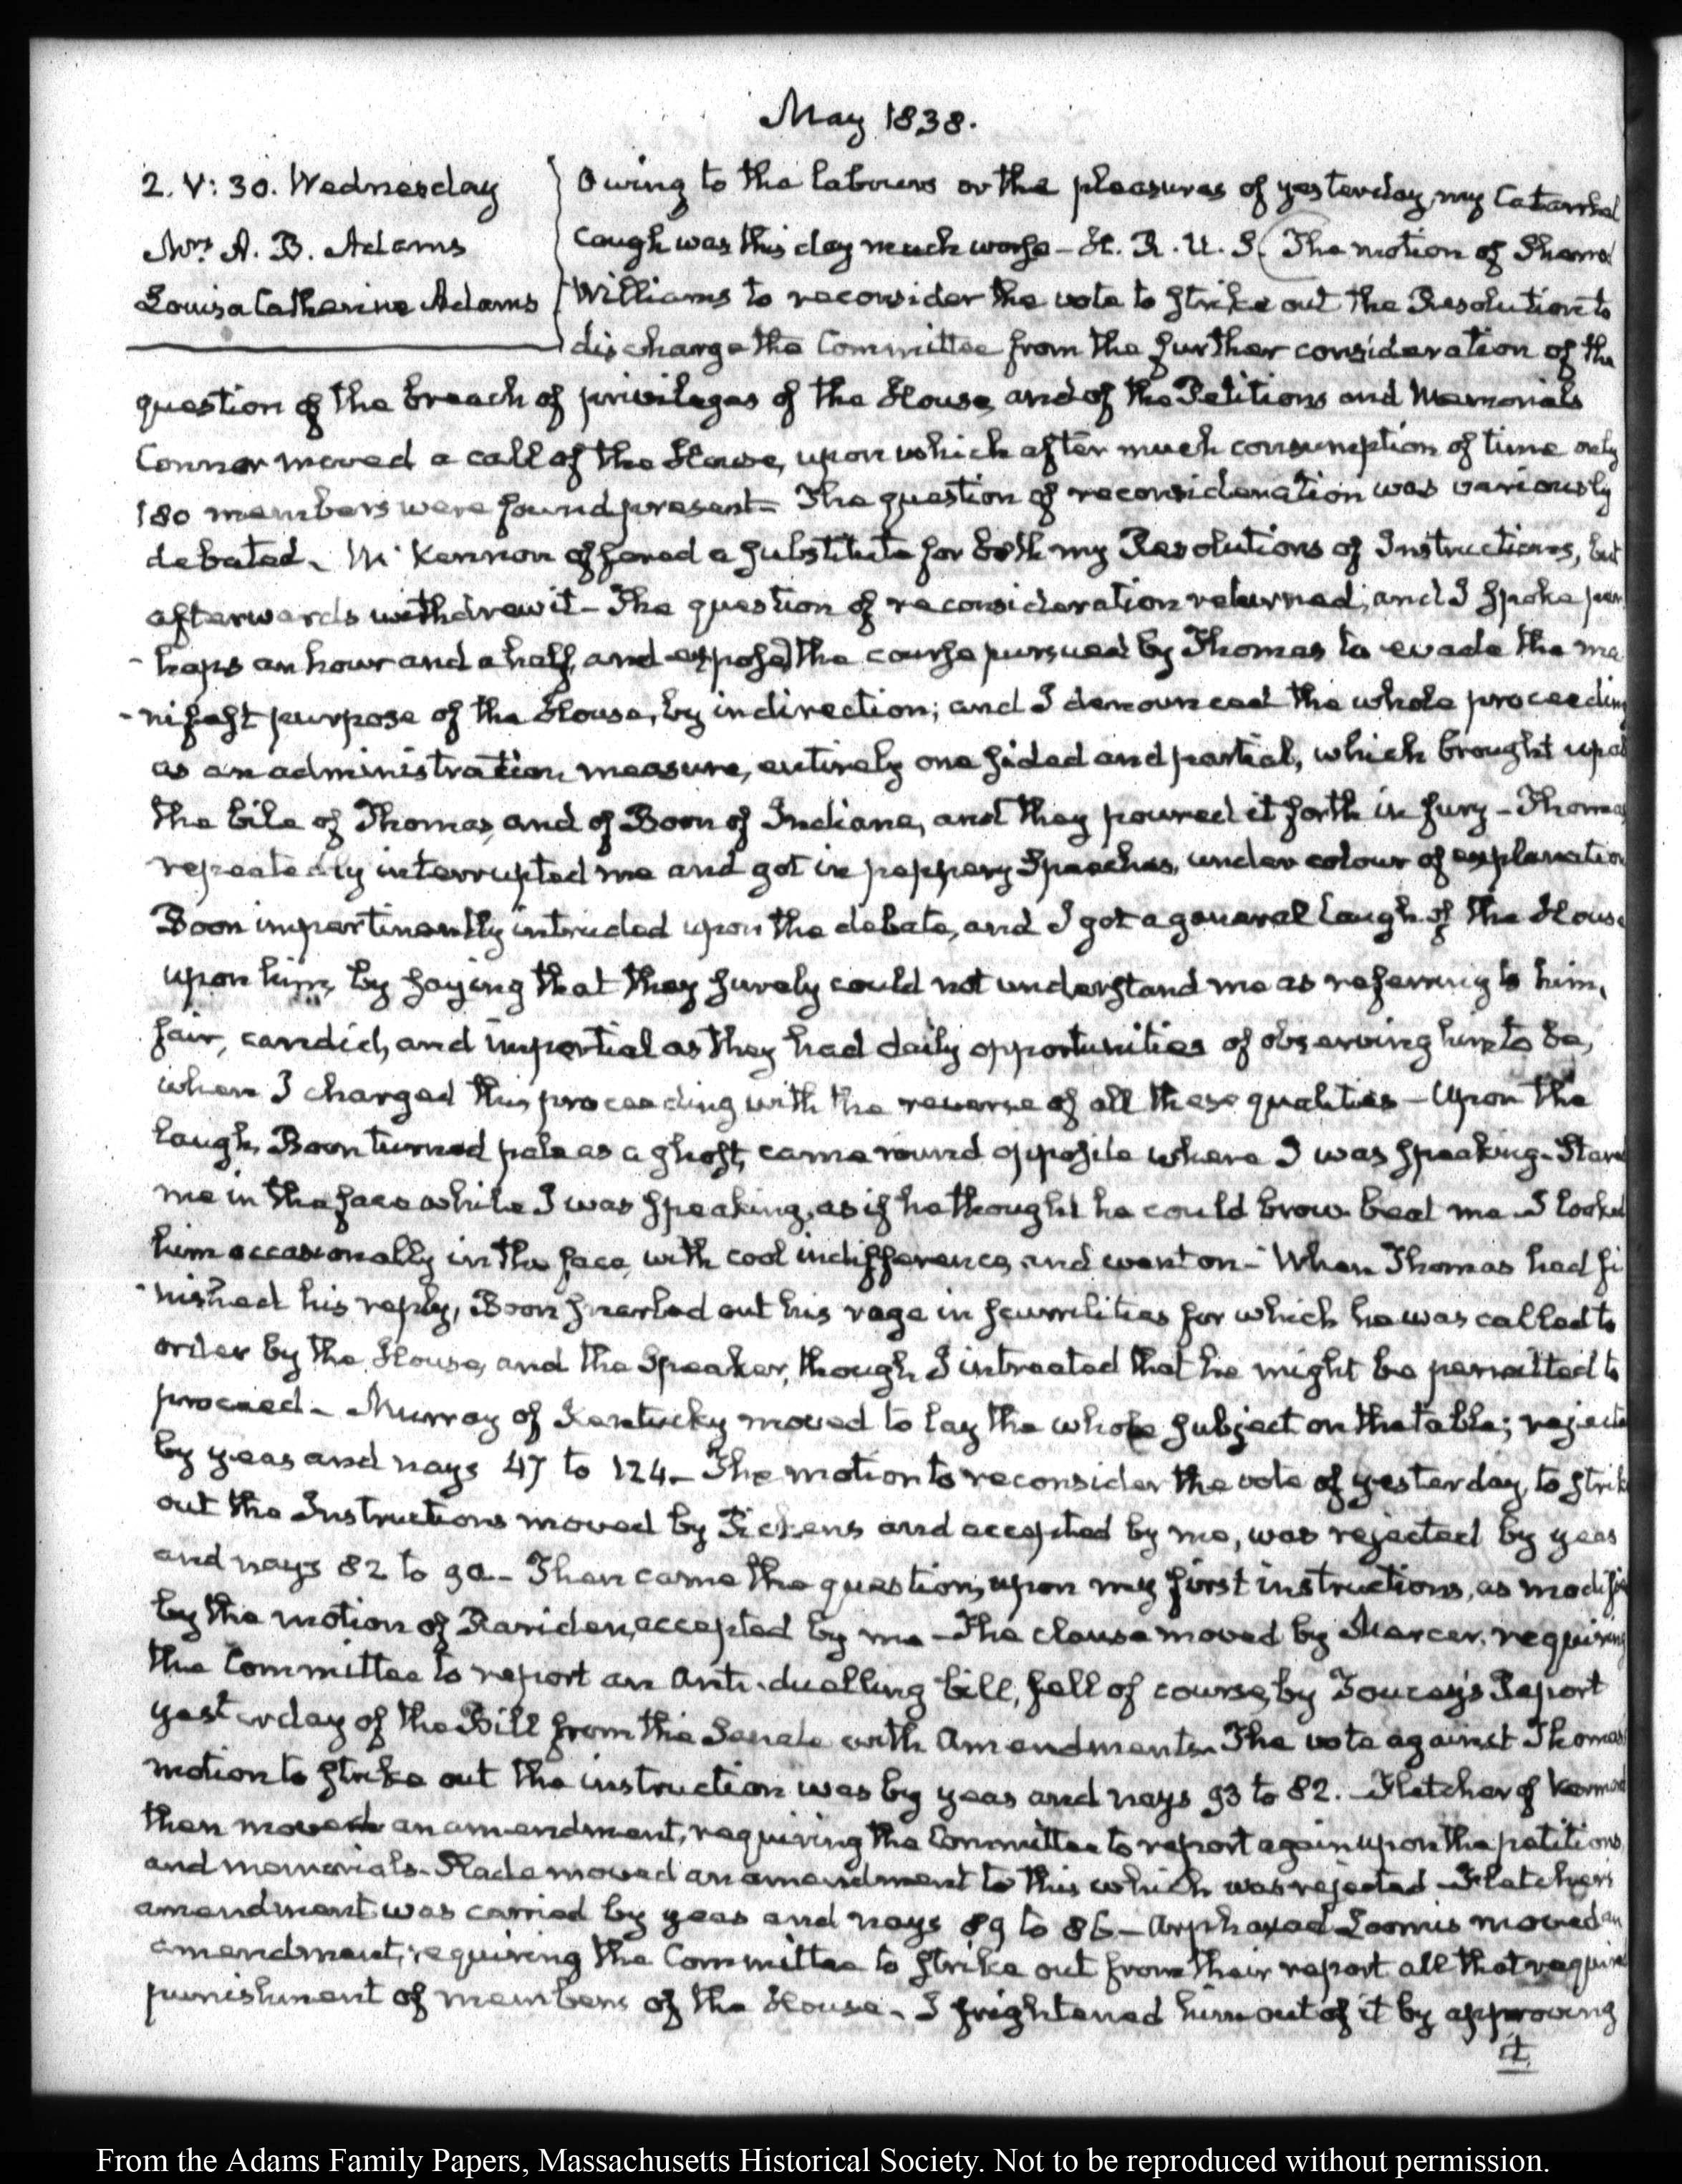 May 1838.
2. V: 30. Wednesday
Mrs A. B. Adams
Louisa Catherine Adams
Owing to the labours or the pleasures of yesterday, my Catarrhal
cough was this day much worse – H. R. U. S. (The motion of Sherrod
Williams to reconsider the vote to strike out the Resolution to
discharge the Committee from the further consideration of the
question of the breach of privileges of the House, and of the Petitions and Memorials
Connor moved a call of the House, upon which after much consumption of time only
180 members were found present – The question of reconsideration was variously
debated. McKennon offered a substitute for both my Resolutions of Instructions, but
afterwards withdrew it – The question of reconsideration returned; and I spoke per
- haps an hour and a half, and exposed the course pursued by Thomas to evade the ma
- nifest purpose of the House, by indirection; and I denounced the whole proceeding
as an administration measure, entirely one sided and partial, which brought up all
the bile of Thomas, and of Boon of Indiana, and they poured it forth in fury – Thomas
repeatedly interrupted me and got in peppery Speeches, under colour of explanation
Boon impertinently intruded upon the debate, and I got a general laugh of the House
upon him, by saying that they surely could not understand me as referring to him,
fair, candid, and impartial as they had daily opportunities of observing him to be,
when I charged this proceeding with the reverse of all these qualities – Upon the
laugh, Boon turned pale as a ghost, came round opposite where I was speaking – Stared
me in the face while I was speaking, as if he thought he could brow-beat me – I looked
him occasionally in the face, with cool indifference, and went on – When Thomas had fi
- nished his reply, Boon snarled out his rage in scurrilities for which he was called to
order by the House, and the Speaker, though I intreated that he might be permitted to
proceed – Murray of Kentucky moved to lay the whole subject on the table; rejected
by yeas and nays 47 to 124 – The motion to reconsider the vote of yesterday, to strike
out the Instructions moved by Pickens and accepted by me, was rejected by yeas
and nays 82 to 90 – Then came the question, upon my first instructions, as modified
by the motion of Rariden, accepted by me – The clause moved by Mercer, requiring
the Committee to report an Anti-duelling bill, fell of course, by Toucey's Report
yesterday of the Bill from the Senate with Amendments. The vote against Thomas's
motion to strike out the instruction was by yeas and nays 93 to 82. – Fletcher of Vermont
then moved an amendment, requiring the Committee to report again upon the petitions
and memorials – Slade moved an amendment to this which was rejected – Fletcher's
amendment was carried by yeas and nays 89 to 86 – Arphaxad Loomis moved an
amendment, requiring the Committee to strike out from their report all that required
punishment of members of the House. – I frightened him out of it by approving
it.
From the Adams Family Papers, Massachusetts Historical Society. Not to be reproduced without permission.